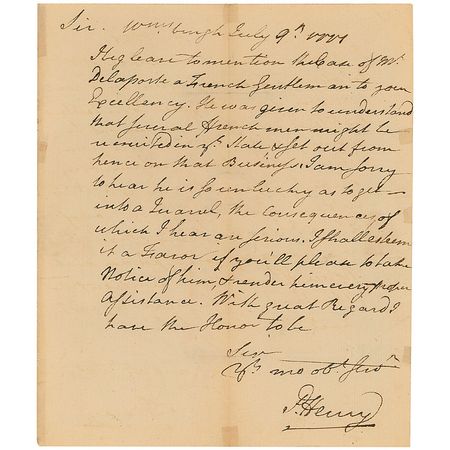 Sir. Wmsburgh July 9th 1777
I beg leave to mention the Case of Mr.
Delaporte a French Gentleman to your
Excellency. He was given to understand
that several French men might be
recruited in yr. State & set out from
hence on that Business. I am sorry
to hear he is so unlucky as to get
into a Quarrel, the Consequences of
which I hear are serious. I shall esteem
it a Favor if you'll please to take
Notice of him & render him every proper
Assistance. With great Regard I
have the Honor to be
Sir
Yr. mo obt. Servt
P. Henry